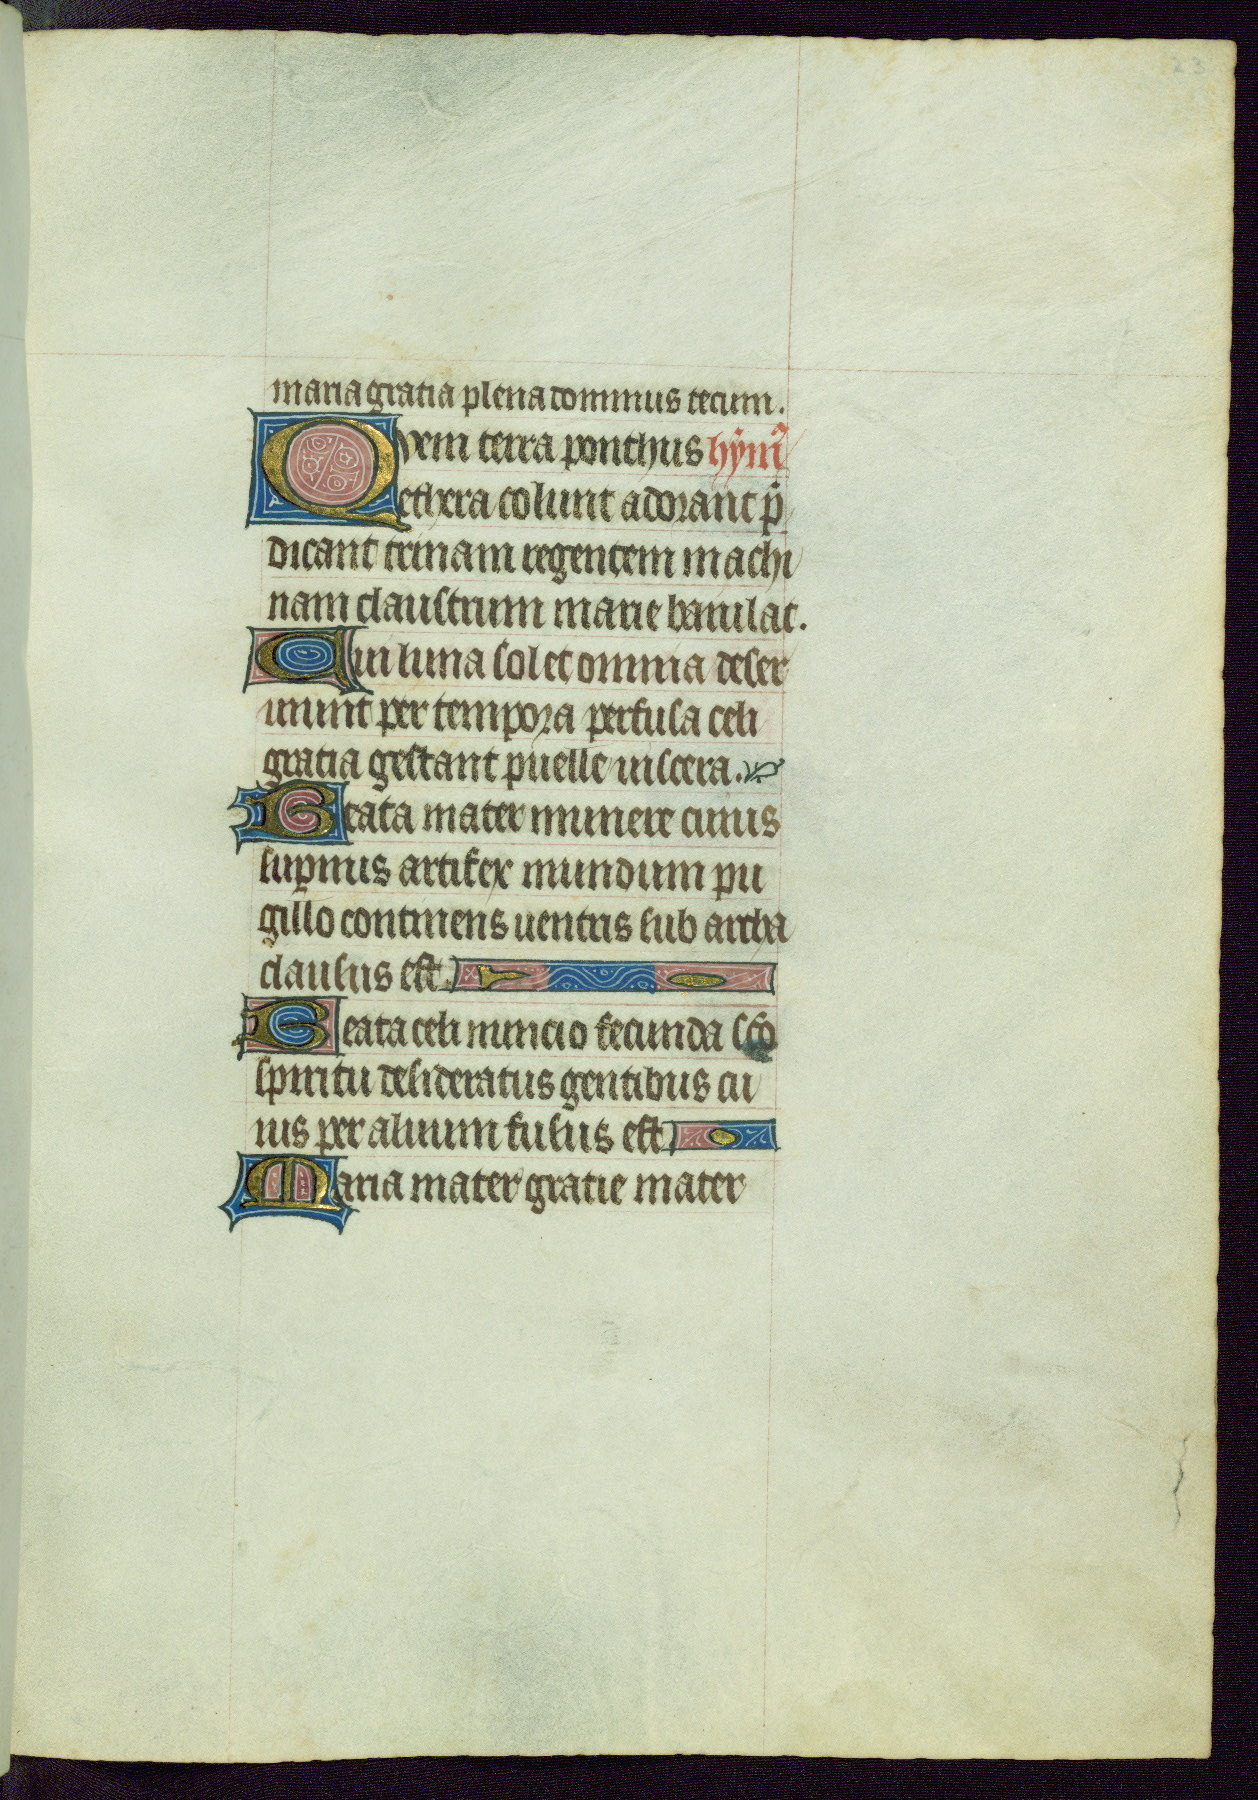 23
maria gratia plena dominus tecum.
Quem terra ponthus hym̄
ethera colunt adorant p̄
dicant trinam regentem machi
nam claustrum marie baiulat.
Cui luna sol et omnia deser
uiunt per tempora perfusa celi
gratia gestant puelle uiscera.
Beata mater munere cuius
suꝑnus artifex mundum pu
gillo continens uentris sub archa
clausus est.
Beata celi nuncio fecunda sc̄o
spiritu desideratus gentibus cu
ius per aluum fusus est
Maria mater gratie mater